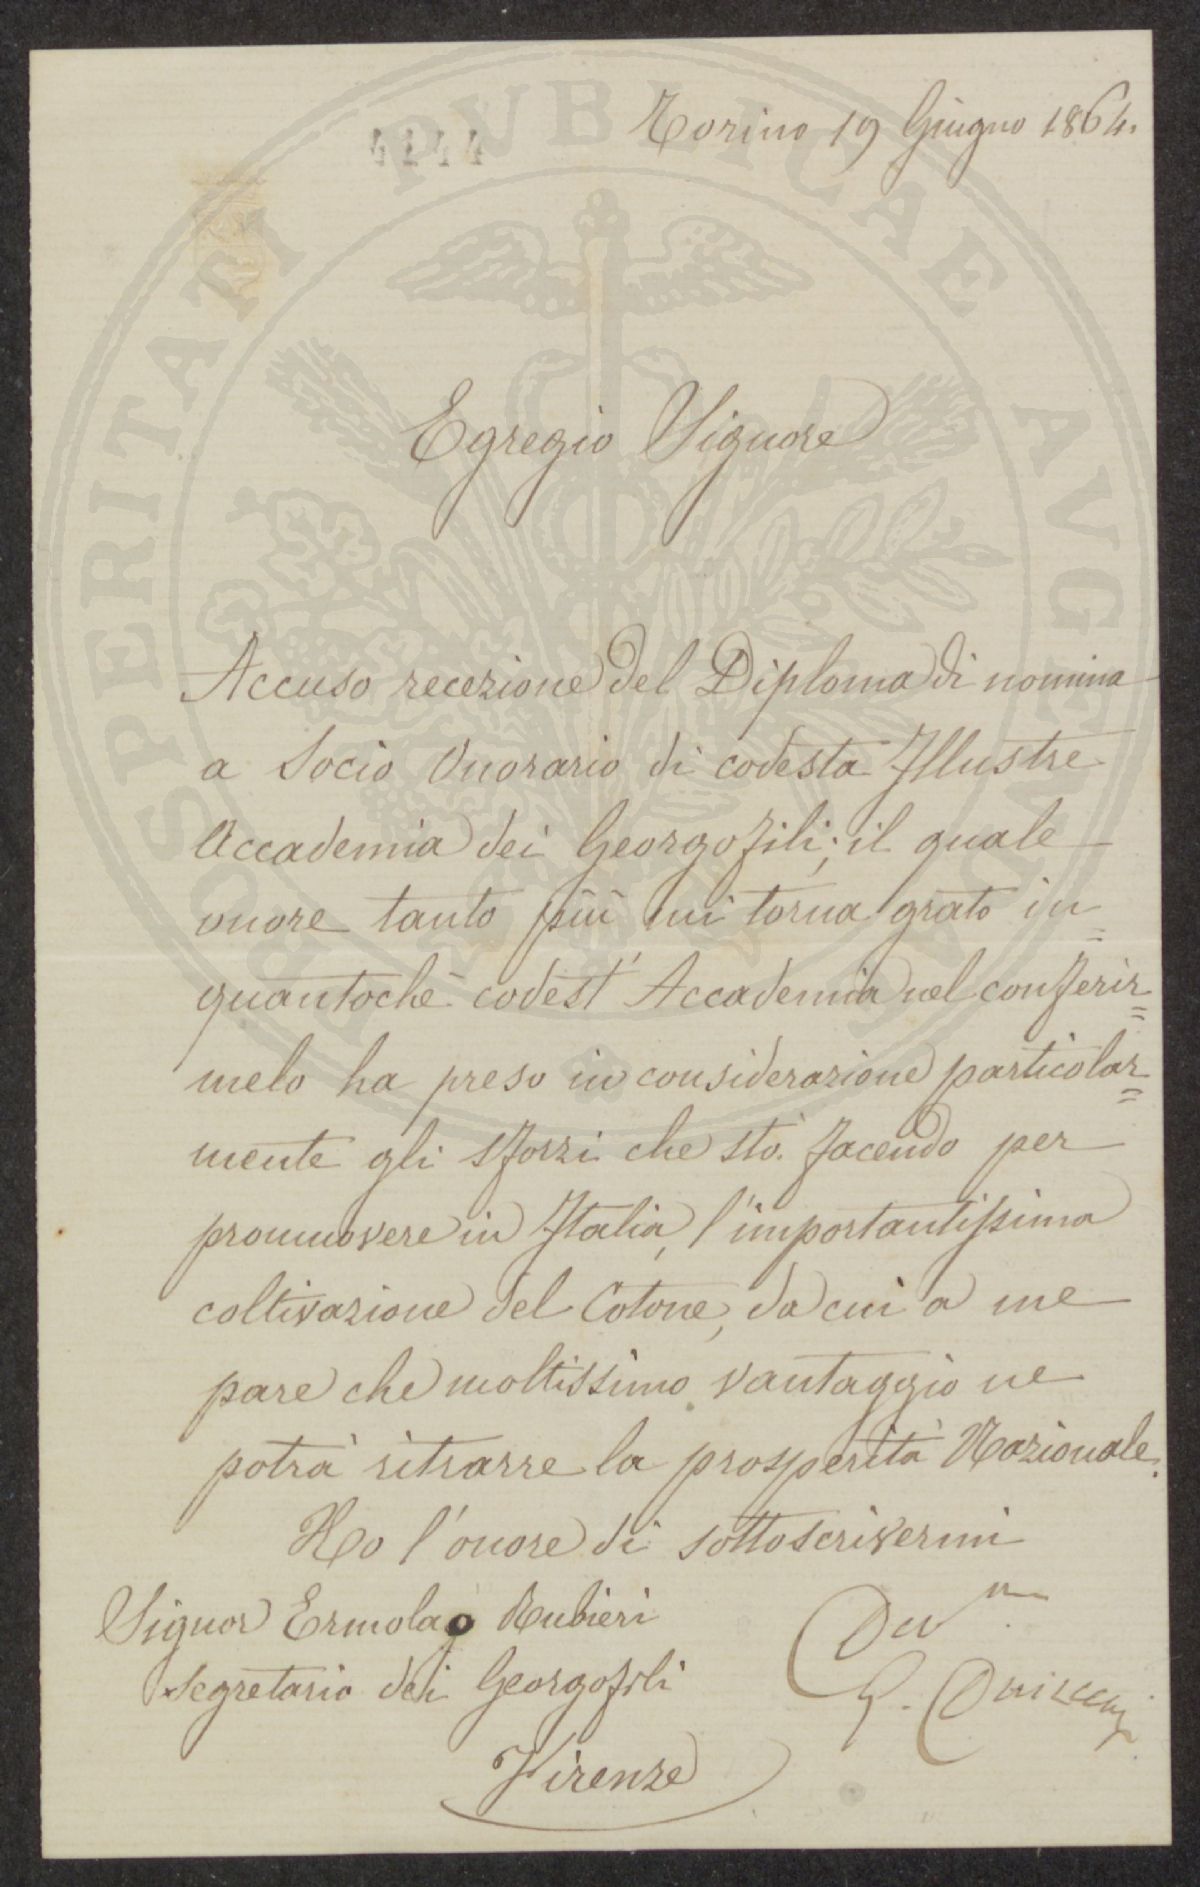 Torino 19 Giugno 1864.
4444
PROSPERITATI PVBLICAE AVGENDAE
Egregio Signore
Accuso recezione del Diploma di nomina
a Socio Onorario di codesta Illustre
Accademia dei Georgofili; il quale
onore tanto più mi torna grato in=
quantochè codest' Accademia nel conferir=
melo ha preso in considerazione particolar=
mente gli sforzi che stò facendo per
promuovere in Italia, l'importantissima
coltivazione del Cotone, da cui a me
pare che moltissimo vantaggio ne
potrà ritrarre la prosperità Nazionale.
Ho l'onore di sottoscrivermi
Signor Ermolao Rubieri
Segretario dei Georgofili
Firenze
Dev.mo
G. Devincenzi